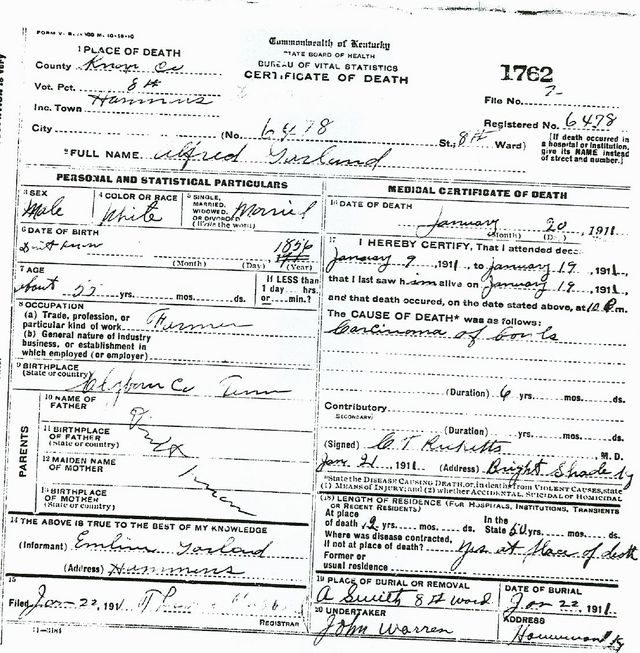 Commonwealth of Kentucky
STATE BOARD OF HEALTH
BUREAU OF VITAL STATISTICS
CERTIFICATE OF DEATH
1 PLACE OF DEATH
County Knox Co
Vot. Pct. 8th
Inc. Town Hammons
City (No. 6478 St., 8th Ward)
1762
File No.
Registered No. 6478
[If death occurred in a hospital or institution, give its NAME instead of street and number.]
2 FULL NAME Alfred Gosland
PERSONAL AND STATISTICAL PARTICULARS
3 SEX Male
4 COLOR OR RACE White
5 SINGLE, MARRIED, WIDOWED, OR DIVORCED (Write the word) Married
6 DATE OF BIRTH
Dont know 1856
(Month) (Day) (Year)
7 AGE
about 55 yrs. mos. ds.
If LESS than 1 day hrs. or min.?
8 OCCUPATION
(a) Trade, profession, or particular kind of work Farmer
(b) General nature of industry
business, or establishment in
which employed (or employer)
9 BIRTHPLACE
(State or country) Co Tenn
PARENTS
10 NAME OF FATHER
11 BIRTHPLACE OF FATHER
(State or country)
12 MAIDEN NAME OF MOTHER
13 BIRTHPLACE OF MOTHER
(State or country)
14 THE ABOVE IS TRUE TO THE BEST OF MY KNOWLEDGE
(Informant) Emline Gosland
(Address) Hammons
15
Filed Jan 22, 191
REGISTRAR
11-3184
MEDICAL CERTIFICATE OF DEATH
16 DATE OF DEATH
January 20, 1911
(Month) (Day)
17 I HEREBY CERTIFY, That I attended dec
January 9 1911, to January 19, 1911,
that I last saw him alive on January 19, 1911,
and that death occured, on the date stated above, at 10 m.
The CAUSE OF DEATH* was as follows:
Carcinoma of bowels
(Duration) 6 yrs. mos. ds.
Contributory
(SECONDARY)
(Duration) yrs. mos. ds.
(Signed) C T Ricketts, M. D.
Jan. 21, 1911 (Address) Bright Shade Ky
*State the DISEASE CAUSING DEATH, or, in deaths from VIOLENT CAUSES, state
(1) MEANS OF INJURY; and (2) whether ACCIDENTAL, SUICIDAL OR HOMICIDAL
(18) LENGTH OF RESIDENCE (FOR HOSPITALS, INSTITUTIONS, TRANSIENTS
OR RECENT RESIDENTS)
At place of death 2 yrs. mos. ds. In the State 50 yrs. mos. ds.
Where was disease contracted,
if not at place of death? Yes at place of death
Former or
usual residence
19 PLACE OF BURIAL OR REMOVAL
A Smith 8th Ward
DATE OF BURIAL
Jan 22, 1911
20 UNDERTAKER
John Warren
ADDRESS